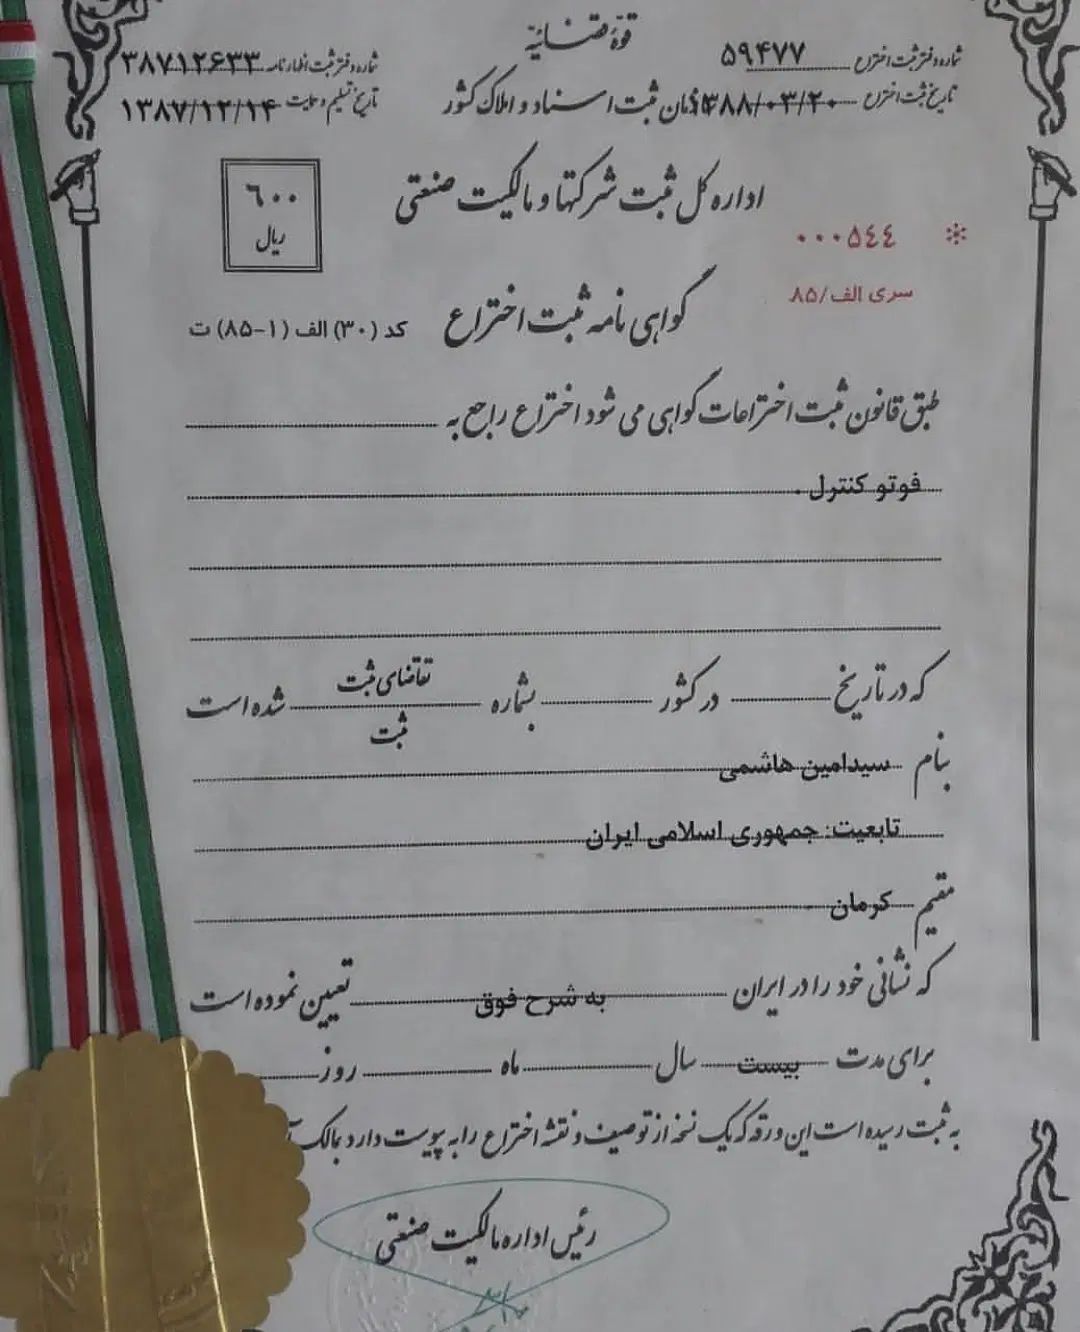 قوۀ قضائیه
شماره دفتر ثبت اختراع ۵۹۴۷۷
شماره دفتر ثبت اظهارنامه ۳۸۷۱۲۶۳۳
تاریخ ثبت اختراع ۱۳۸۸/۰۳/۲۰
سازمان ثبت اسناد و املاک کشور
تاریخ تسلیم و حمایت ۱۳۸۷/۱۲/۱۴
اداره کل ثبت شرکتها و مالکیت صنعتی
۶۰۰
ریال
۰۰۰۵۴۴ *
سری الف/۸۵
گواهی نامه ثبت اختراع
کد (۳۰) الف (۱-۸۵) ت
طبق قانون ثبت اختراعات گواهی می شود اختراع راجع به
فوتو کنترل .
که در تاریخ در کشور بشماره تقاضای ثبت شده است
ثبت
بنام سیدامین هاشمی
تابعیت: جمهوری اسلامی ایران
مقیم کرمان
که نشانی خود را در ایران به شرح فوق تعیین نموده است
برای مدت بیست سال ماه روز
به ثبت رسیده است این ورقه که یک نسخه از توصیف و نقشه اختراع را به پیوست دارد بمالک
رئیس اداره مالکیت صنعتی